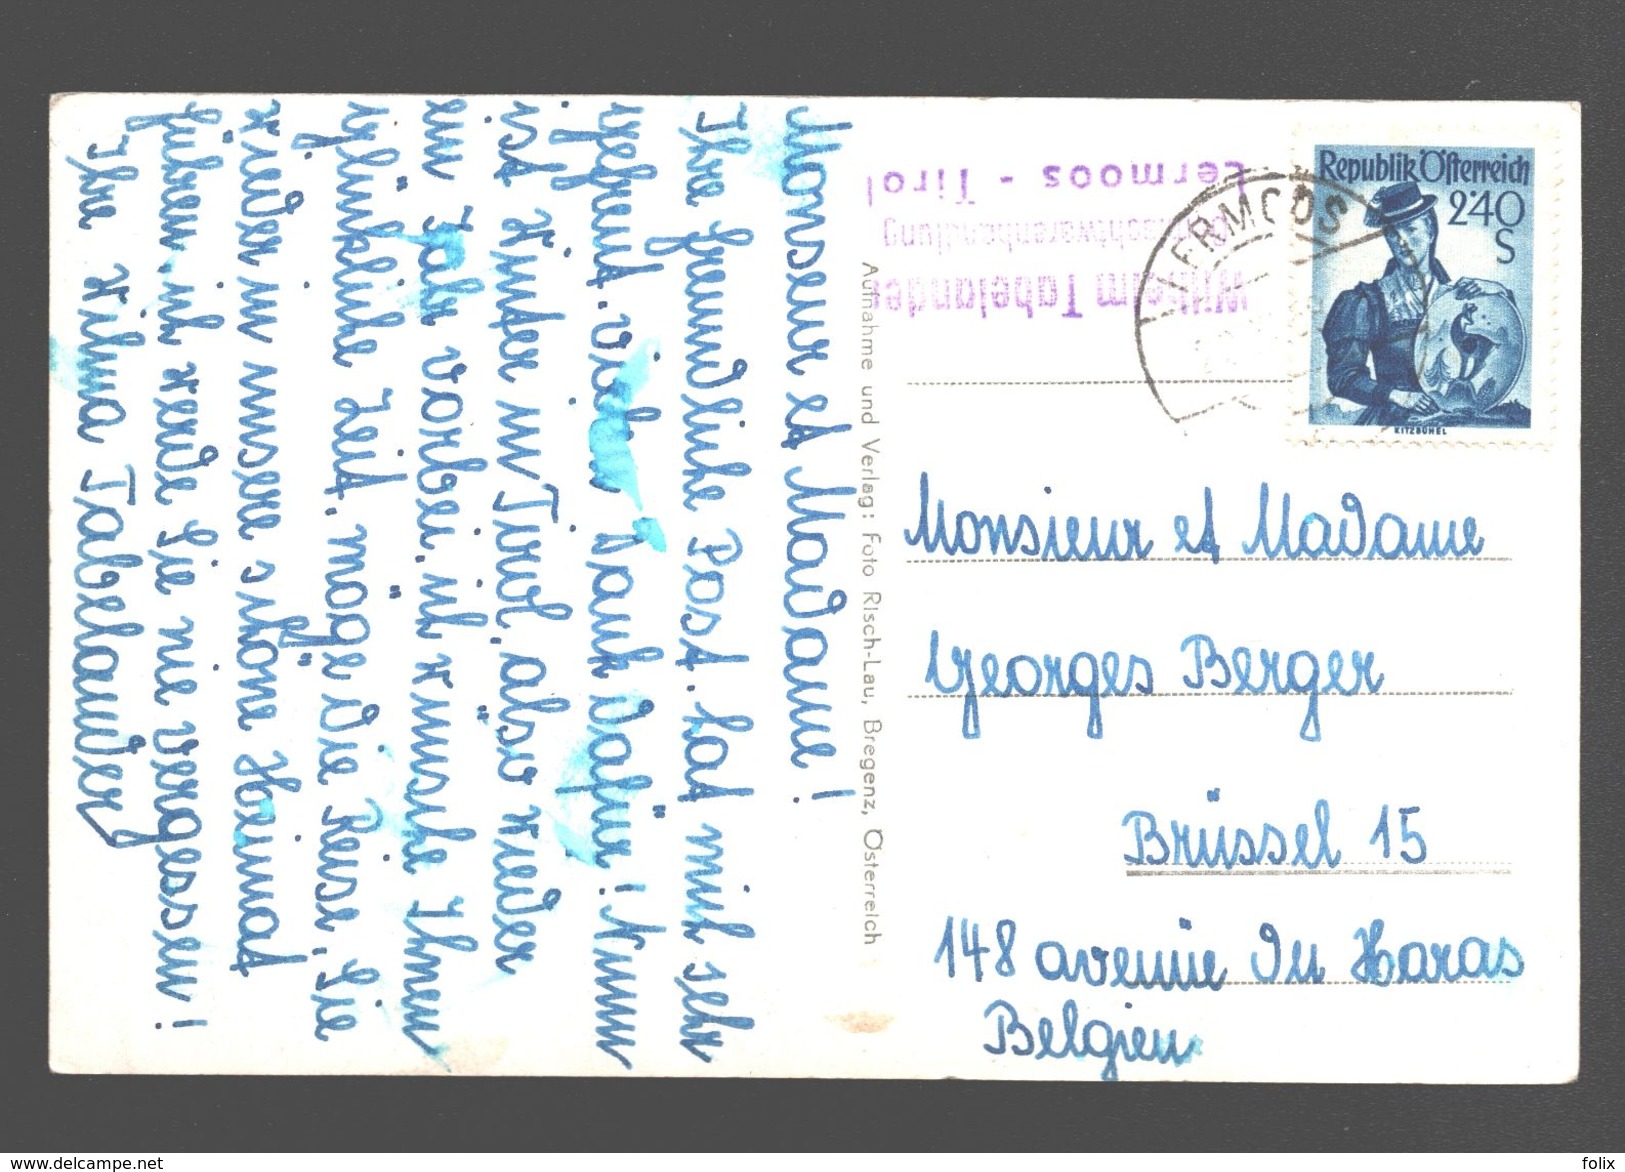 Monseur et Madame!
Ihre freundliche Post. hat mich sehr
gefreut. vielen Dank dafür! Nun
ist Winter in Tirol, also wieder
ein Jahr vorbei. ich wünsche Ihnen
glückliche Zeit. möge die Reise, Sie
wieder in unsere schöne Heimat
führen. ich werde Sie nie vergessen!
Ihre Wilma Tabelander
Aufnahme und Verlag: Foto Risch-Lau, Bregenz, Österreich
Wilhelm Tabelander
Gemischtwarenhandlung
Lermoos - Tirol
LERMOOS
Republik Österreich
2·40
S
KITZBÜHEL
Monsieur et Madame
Georges Berger
Brüssel 15
148 avenue du Haras
Belgien
delcampe.net
felix